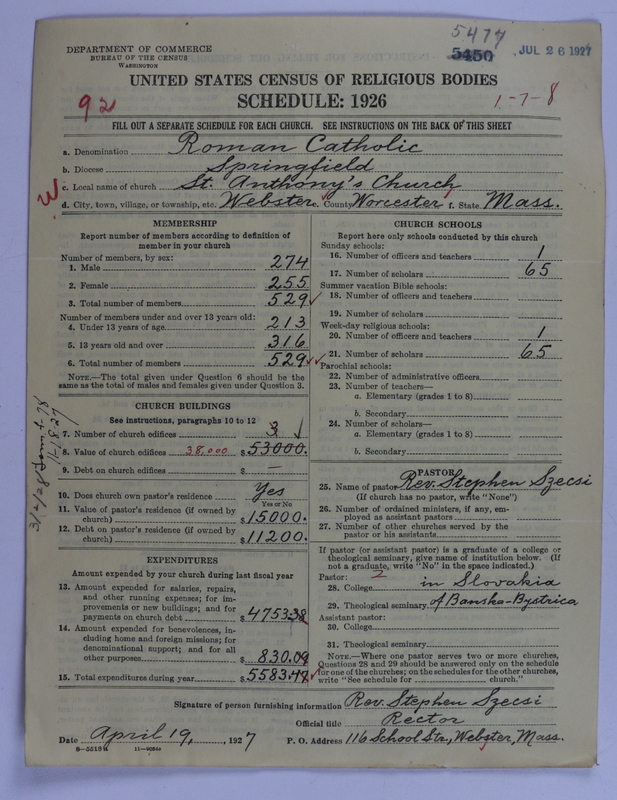 5477
5450 JUL 26 1927
DEPARTMENT OF COMMERCE
BUREAU OF THE CENSUS
WASHINGTON
UNITED STATES CENSUS OF RELIGIOUS BODIES
SCHEDULE: 1926
92
1-7-8
FILL OUT A SEPARATE SCHEDULE FOR EACH CHURCH. SEE INSTRUCTIONS ON THE BACK OF THIS SHEET
a. Denomination Roman Catholic
b. Diocese Springfield
W c. Local name of church St. Anthony's Church
d. City, town, village, or township, etc. Webster e. County Worcester f. State Mass.
MEMBERSHIP
Report number of members according to definition of
member in your church
Number of members, by sex:
1. Male 274
2. Female 255
3. Total number of members 529
Number of members under and over 13 years old:
4. Under 13 years of age 213
5. 13 years old and over 316
6. Total number of members 529
NOTE.—The total given under Question 6 should be the
same as the total of males and females given under Question 3.
CHURCH BUILDINGS
See instructions, paragraphs 10 to 12
7. Number of church edifices
8. Value of church edifices 38,000 $ 53000.
9. Debt on church edifices $ —
10. Does church own pastor's residence Yes
Yes or No
11. Value of pastor's residence (if owned by
church) $ 15000.
12. Debt on pastor's residence (if owned by
church) $ 11200.
EXPENDITURES
Amount expended by your church during last fiscal year
13. Amount expended for salaries, repairs,
and other running expenses; for im-
provements or new buildings; and for
payments on church debt $ 4753.38
14. Amount expended for benevolences, in-
cluding home and foreign missions; for
denominational support; and for all
other purposes $ 830.09
15. Total expenditures during year $ 5583.47
CHURCH SCHOOLS
Report here only schools conducted by this church
Sunday schools:
16. Number of officers and teachers 1
17. Number of scholars 65
Summer vacation Bible schools:
18. Number of officers and teachers
19. Number of scholars
Week-day religious schools:
20. Number of officers and teachers 1
21. Number of scholars 65
Parochial schools:
22. Number of administrative officers
23. Number of teachers—
a. Elementary (grades 1 to 8)
b. Secondary
24. Number of scholars—
a. Elementary (grades 1 to 8)
b. Secondary
PASTOR
25. Name of pastor Rev. Stephen Szecsi
(If church has no pastor, write "None")
26. Number of ordained ministers, if any, em-
ployed as assistant pastors
27. Number of other churches served by the
pastor or his assistants
If pastor (or assistant pastor) is a graduate of a college or
theological seminary, give name of institution below. (If
not a graduate, write "No" in the space indicated.)
Pastor: 2
28. College in Slovakia
29. Theological seminary of Banska-Bystrica
Assistant pastor:
30. College
31. Theological seminary
NOTE.—Where one pastor serves two or more churches,
Questions 28 and 29 should be answered only on the schedule
for one of the churches; on the schedules for the other churches,
write "See schedule for church."
Signature of person furnishing information Rev. Stephen Szecsi
Official title Rector
Date April 19, 1927 P. O. Address 116 School Str., Webster, Mass.
8—5518 11—9056